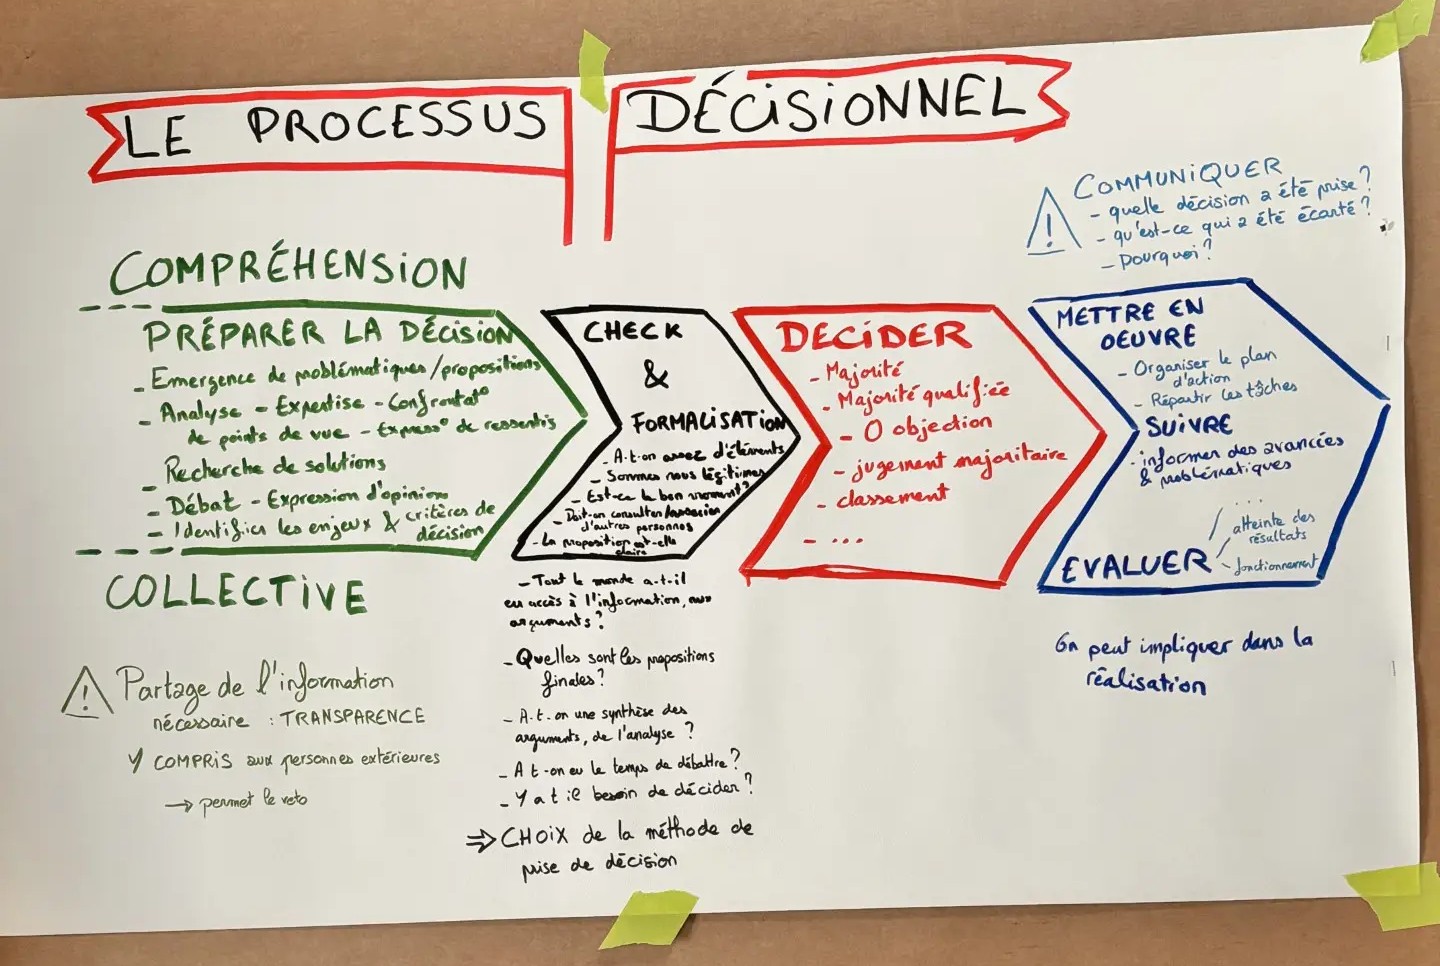 LE PROCESSUS DÉCISIONNEL
COMPRÉHENSION
PRÉPARER LA DÉCISION
- Emergence de problématiques/propositions
- Analyse - Expertise - Confrontat°
de points de vue - Express° de ressentis
- Recherche de solutions
- Débat - Expression d'opinions
- Identifier les enjeux & critères de
décision
COLLECTIVE
⚠ Partage de l'information
nécessaire : TRANSPARENCE
Y COMPRIS aux personnes extérieures
→ permet le veto
CHECK
&
FORMALISATION
- A-t-on assez d'éléments
- Sommes nous légitimes
- Est-ce le bon moment?
- Doit-on consulter/associer
d'autres personnes
- La proposition est-elle
claire
- Tout le monde a-t-il
eu accès à l'information, aux
arguments?
- Quelles sont les propositions
finales?
- A-t-on une synthèse des
arguments, de l'analyse ?
- A t-on eu le temps de débattre?
- Y a t il besoin de décider?
⇒ CHOIX de la méthode de
prise de décision
DECIDER
- Majorité
- Majorité qualifiée
- 0 objection
- jugement majoritaire
- classement
- ...
⚠ COMMUNIQUER
- quelle décision a été prise?
- qu'est-ce qui a été écarté?
- pourquoi?
METTRE EN
OEUVRE
- Organiser le plan
d'action
- Répartir les tâches
SUIVRE
- informer des avancées
& problématiques
...
atteinte des
résultats
EVALUER
- fonctionnement
On peut impliquer dans la
réalisation